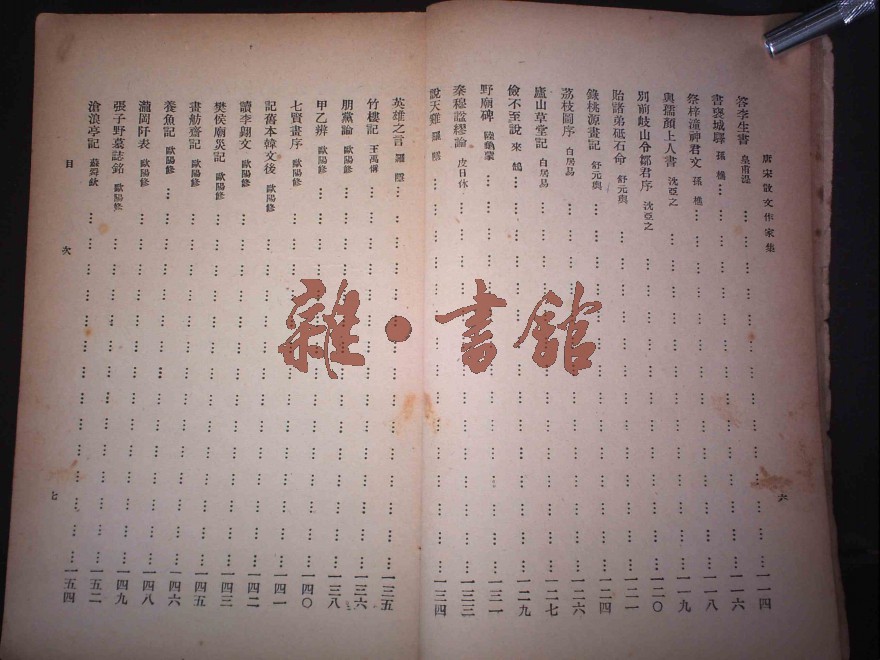 唐宋散文作家集
六
答李生書 皇甫湜 … … … … … … … … … … … … … 一一四
書褒城驛 孫樵 … … … … … … … … … … … … … … 一一六
祭梓潼神君文 孫樵 … … … … … … … … … … … … … 一一八
與孺顏上人書 沈亞之 … … … … … … … … … … … … 一一九
別前岐山令鄒君序 沈亞之 … … … … … … … … … … … 一二〇
貽諸弟砥石命 舒元輿 … … … … … … … … … … … … 一二一
錄桃源畫記 舒元輿 … … … … … … … … … … … … … 一二四
荔枝圖序 白居易 … … … … … … … … … … … … … … 一二六
廬山草堂記 白居易 … … … … … … … … … … … … … 一二七
儉不至說 來鵠 … … … … … … … … … … … … … … 一二九
野廟碑 陸龜蒙 … … … … … … … … … … … … … … 一三一
秦穆諡繆論 皮日休 … … … … … … … … … … … … … 一三三
說天雞 羅隱 … … … … … … … … … … … … … … … 一三四
英雄之言 羅隱 … … … … … … … … … … … … … … 一三五
竹樓記 王禹偁 … … … … … … … … … … … … … … 一三六
朋黨論 歐陽修 … … … … … … … … … … … … … … 一三八
甲乙辨 歐陽修 … … … … … … … … … … … … … …
七賢畫序 歐陽修 … … … … … … … … … … … … … 一四〇
記舊本韓文後 歐陽修 … … … … … … … … … … … … 一四一
讀李翱文 歐陽修 … … … … … … … … … … … … … 一四二
樊侯廟災記 歐陽修 … … … … … … … … … … … … … 一四三
畫舫齋記 歐陽修 … … … … … … … … … … … … … 一四五
養魚記 歐陽修 … … … … … … … … … … … … … … 一四六
瀧岡阡表 歐陽修 … … … … … … … … … … … … … 一四八
張子野墓誌銘 歐陽修 … … … … … … … … … … … … 一四九
滄浪亭記 蘇舜欽 … … … … … … … … … … … … … 一五二
… … … … … … … … … … … … … … 一五四
目次
七
雜·書館